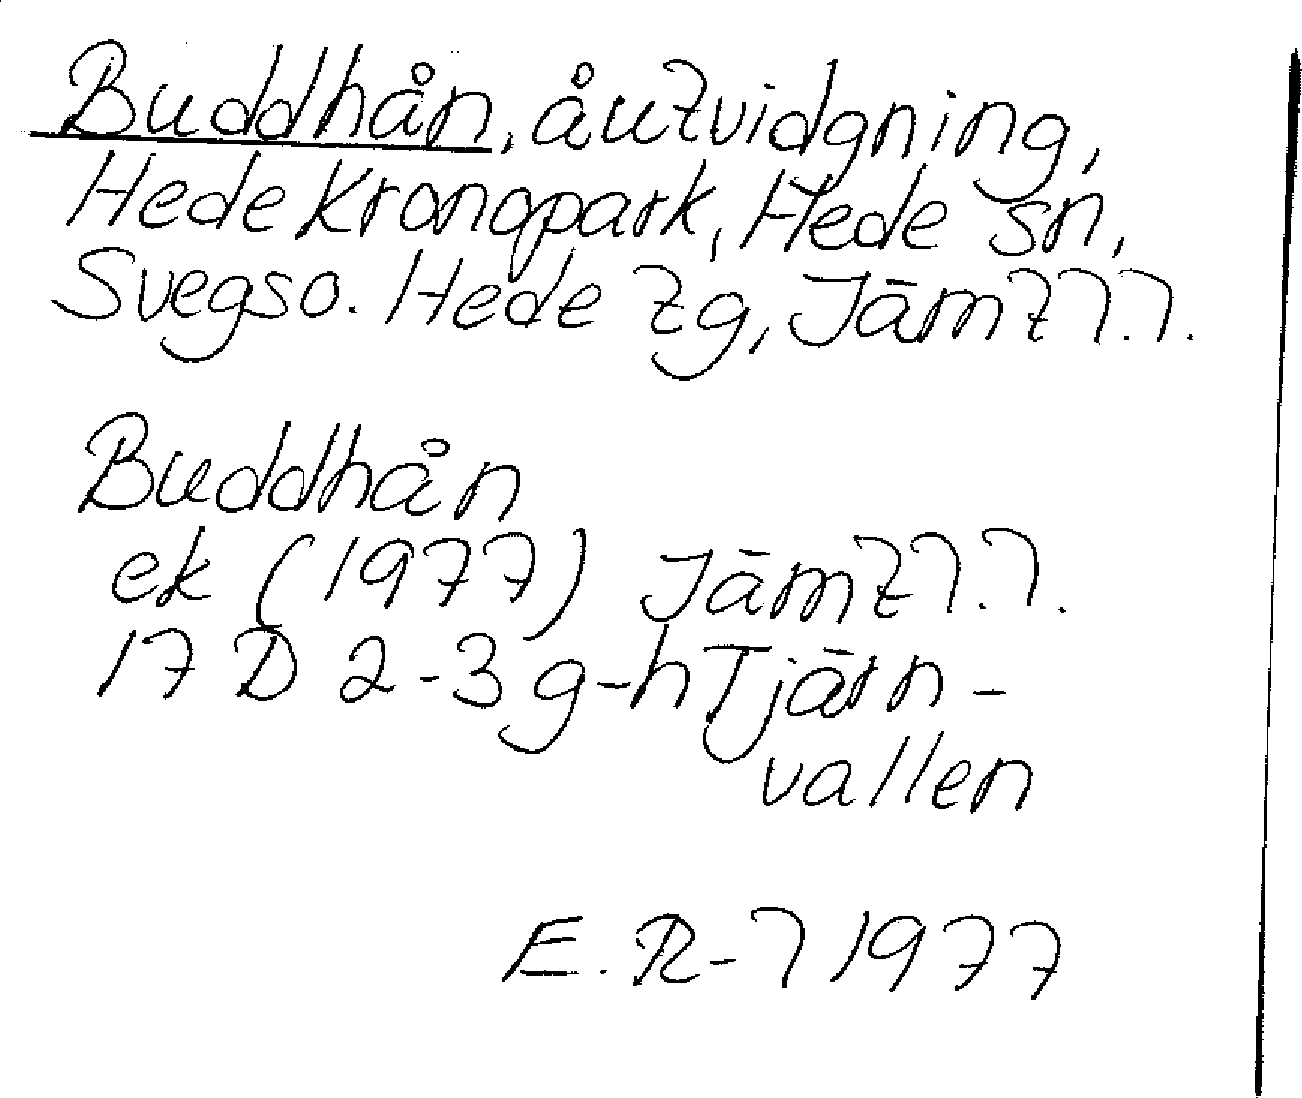 Buddhån, åutvidgning,
Hede kronopark, Hede sn,
Svegs o. Hede tg, Jämtl.l.
Buddhån
ek (1977) Jämtl.l.
17 D 2-3 g-h Tjärn-
vallen
E. R-l 1977